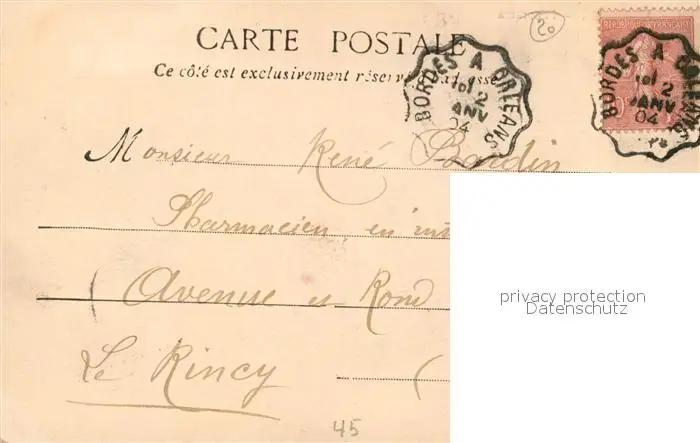 20
CARTE POSTALE
Ce côté est exclusivement réservé à l'adresse
BORDES A ORLEANS
2
JANV
04
REPUBLIQUE FRANÇAISE
BORDES A ORLEANS
2
JANV
04
Monsieur René
Pharmacien en
Avenue et Rond
Le Rincy (
privacy protection
Datenschutz
45